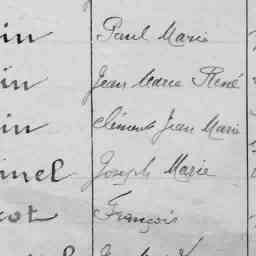 in Paul Marie
in Jean Marie René
in Clément Jean Marie
inel Joseph Marie
cot François